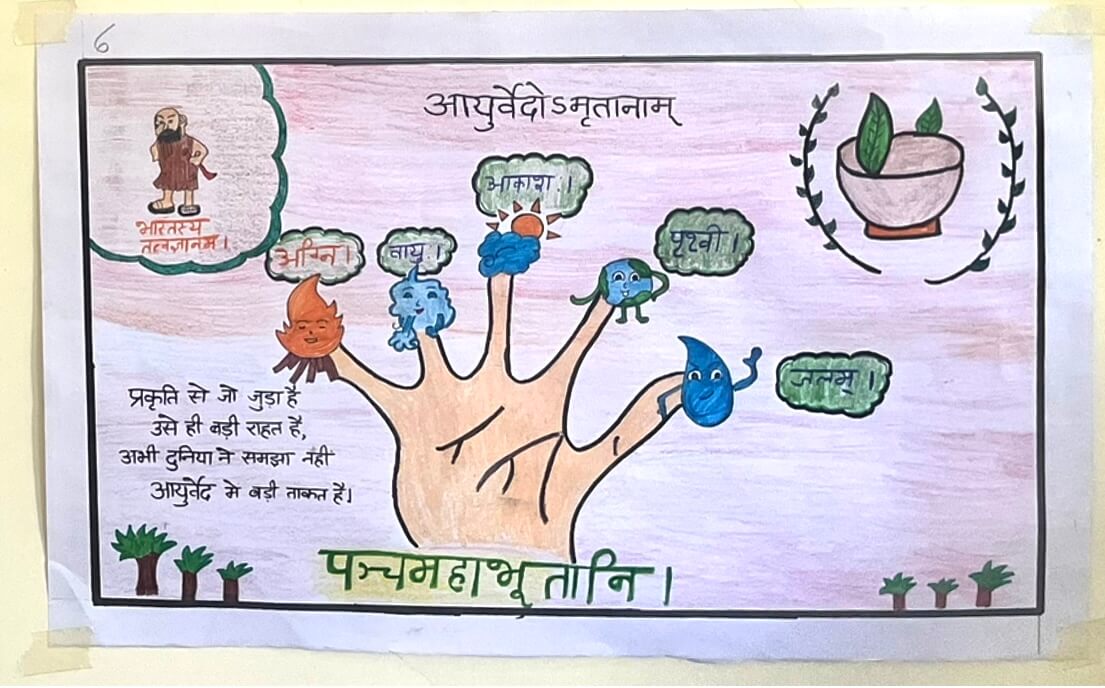 ६
आयुर्वेदोऽमृतानाम्
भारतस्य
तत्वज्ञानम् ।
आकाश: ।
अग्नि ।
वायु ।
पृथ्वी ।
जलम् ।
प्रकृति से जो जुड़ा है
उसे ही बड़ी राहत है,
अभी दुनिया ने समझा नहीं
आयुर्वेद मे बड़ी ताकत है।
पञ्चमहाभूतानि ।